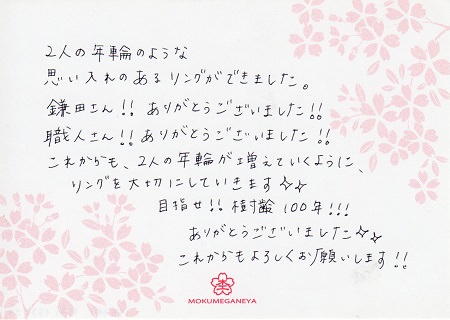 2人の年輪のような
思い入れのあるリングができました。
鎌田さん!! ありがとうございました!!
職人さん!! ありがとうございました!!
これからも、2人の年輪が増えていくように、
リングを大切にしていきます☆☆
目指せ!! 樹齢100年!!!
ありがとうございました☆☆
これからもよろしくお願いします!!
MOKUMEGANEYA